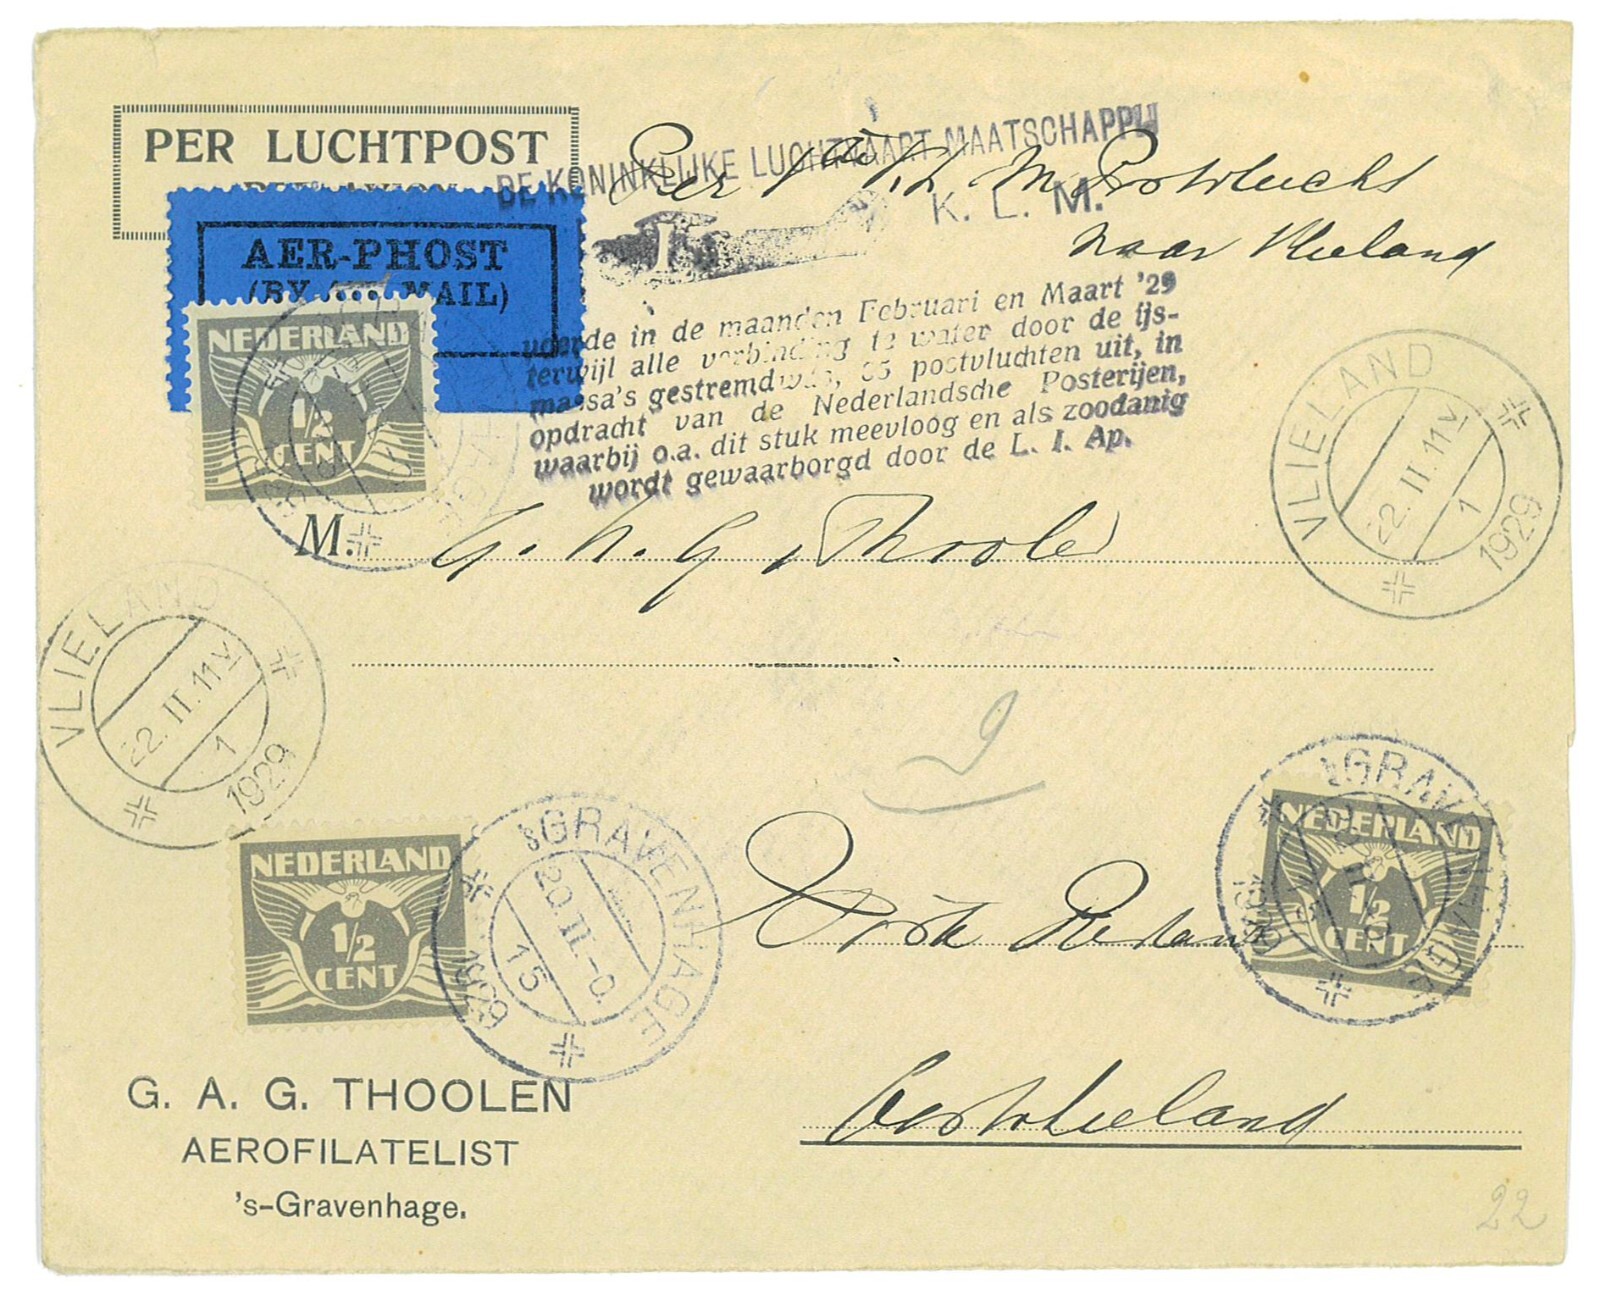 PER LUCHTPOST
AER-PHOST
(BY AIR MAIL)
DE KONINKLIJKE LUCHTVAART MAATSCHAPPIJ
K. L. M.
Per 1ste K.L.M. Postvlucht
naar Vlieland
voerde in de maanden Februari en Maart '29
terwijl alle verbinding te water door de ijs-
massa's gestremd was, 65 postvluchten uit, in
opdracht van de Nederlandsche Posterijen,
waarbij o.a. dit stuk meevloog en als zoodanig
wordt gewaarborgd door de L. I. Ap.
NEDERLAND
1/2
CENT
M. G. A. G. Thoolen
VLIELAND
22.II.11V
1
1929
VLIELAND
22.II.11V
1
1929
9
NEDERLAND
1/2
CENT
'sGRAVENHAGE
20.II-0
15
1929
Poste Restante
NEDERLAND
1/2
CENT
Oostvlieland
G. A. G. THOOLEN
AEROFILATELIST
's-Gravenhage.
22